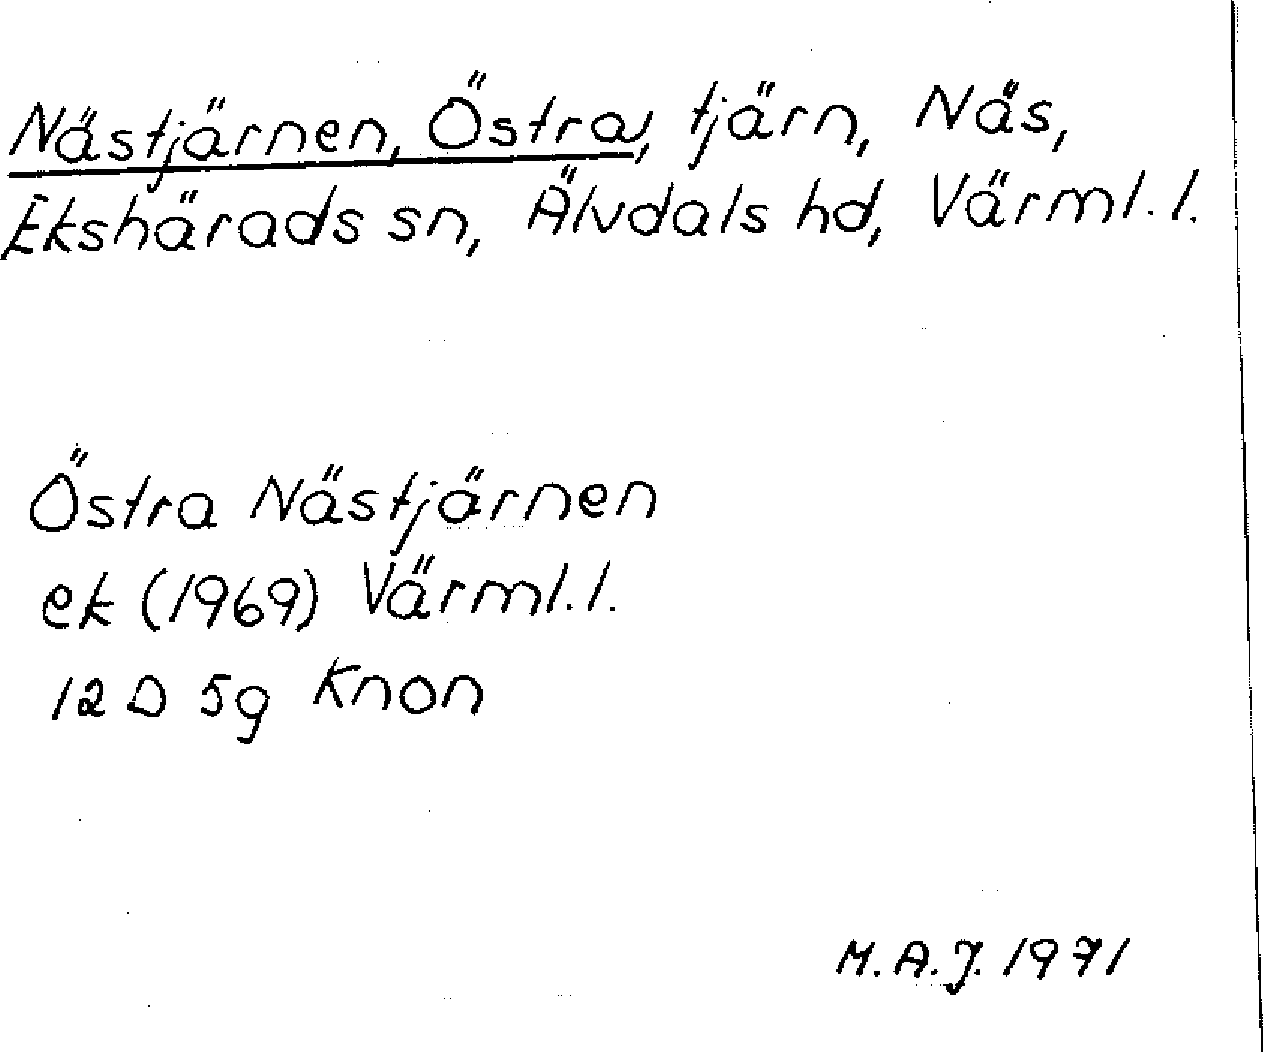 Nästjärnen, Östra, tjärn, Näs,
Ekshärads sn, Älvdals hd, Värml. l.
Östra Nästjärnen
ek (1969) Värml. l.
12 D 5g Knon
M. A. J. 1971